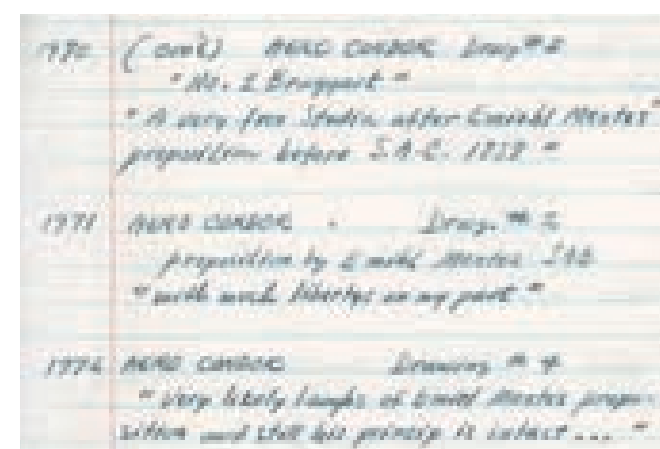 1970 (con't) AERO CONDOR Drawg #
"No. 1 Braggart"
"A very free Studie after Emiehl Mentes"
proposition before S.A.C. 1858"
1971 AERO CONDOR. Drawg. #
proposition by Emiehl Mentes
"with much libertys on my part"
AERO CONDOR Drawing # 4
"Very likely laughs of Emiehl Mentes propo-
sition and still his princip is intact..."